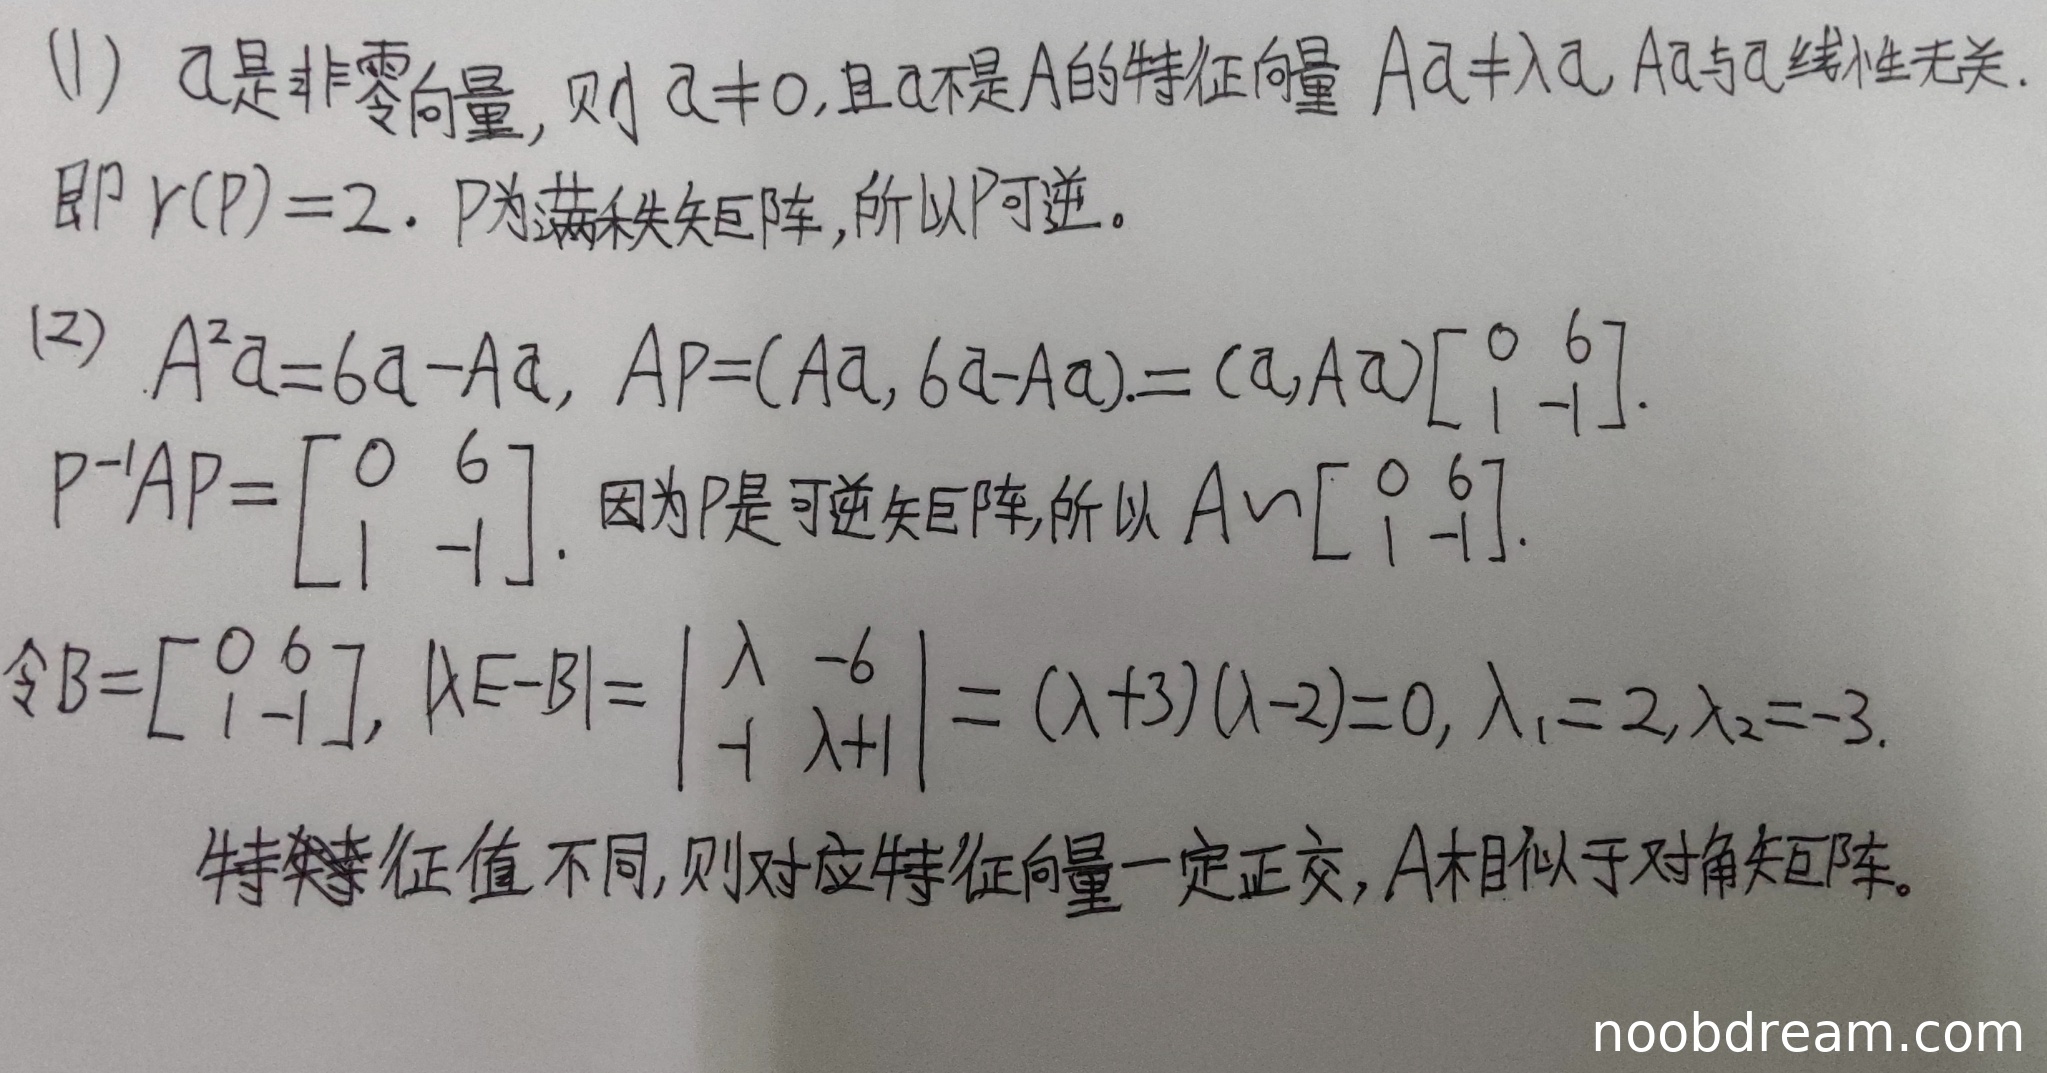 (1) a是非零向量,则 a≠0,且a不是A的特征向量 Aa≠λa, Aa与a线性无关.
即 r(P)=2. P为满秩矩阵,所以P可逆。
(2) A²a=6a-Aa, AP=(Aa, 6a-Aa).=(a,Aa)[0 6
1 -1].
P⁻¹AP=[0 6
1 -1]. 因为P是可逆矩阵,所以 A∽[0 6
1 -1].
令B=[0 6
1 -1], |λE-B|=|λ -6
-1 λ+1|=(λ+3)(λ-2)=0, λ₁=2,λ₂=-3.
特征值不同,则对应特征向量一定正交,A相似于对角矩阵。
noobdream.com